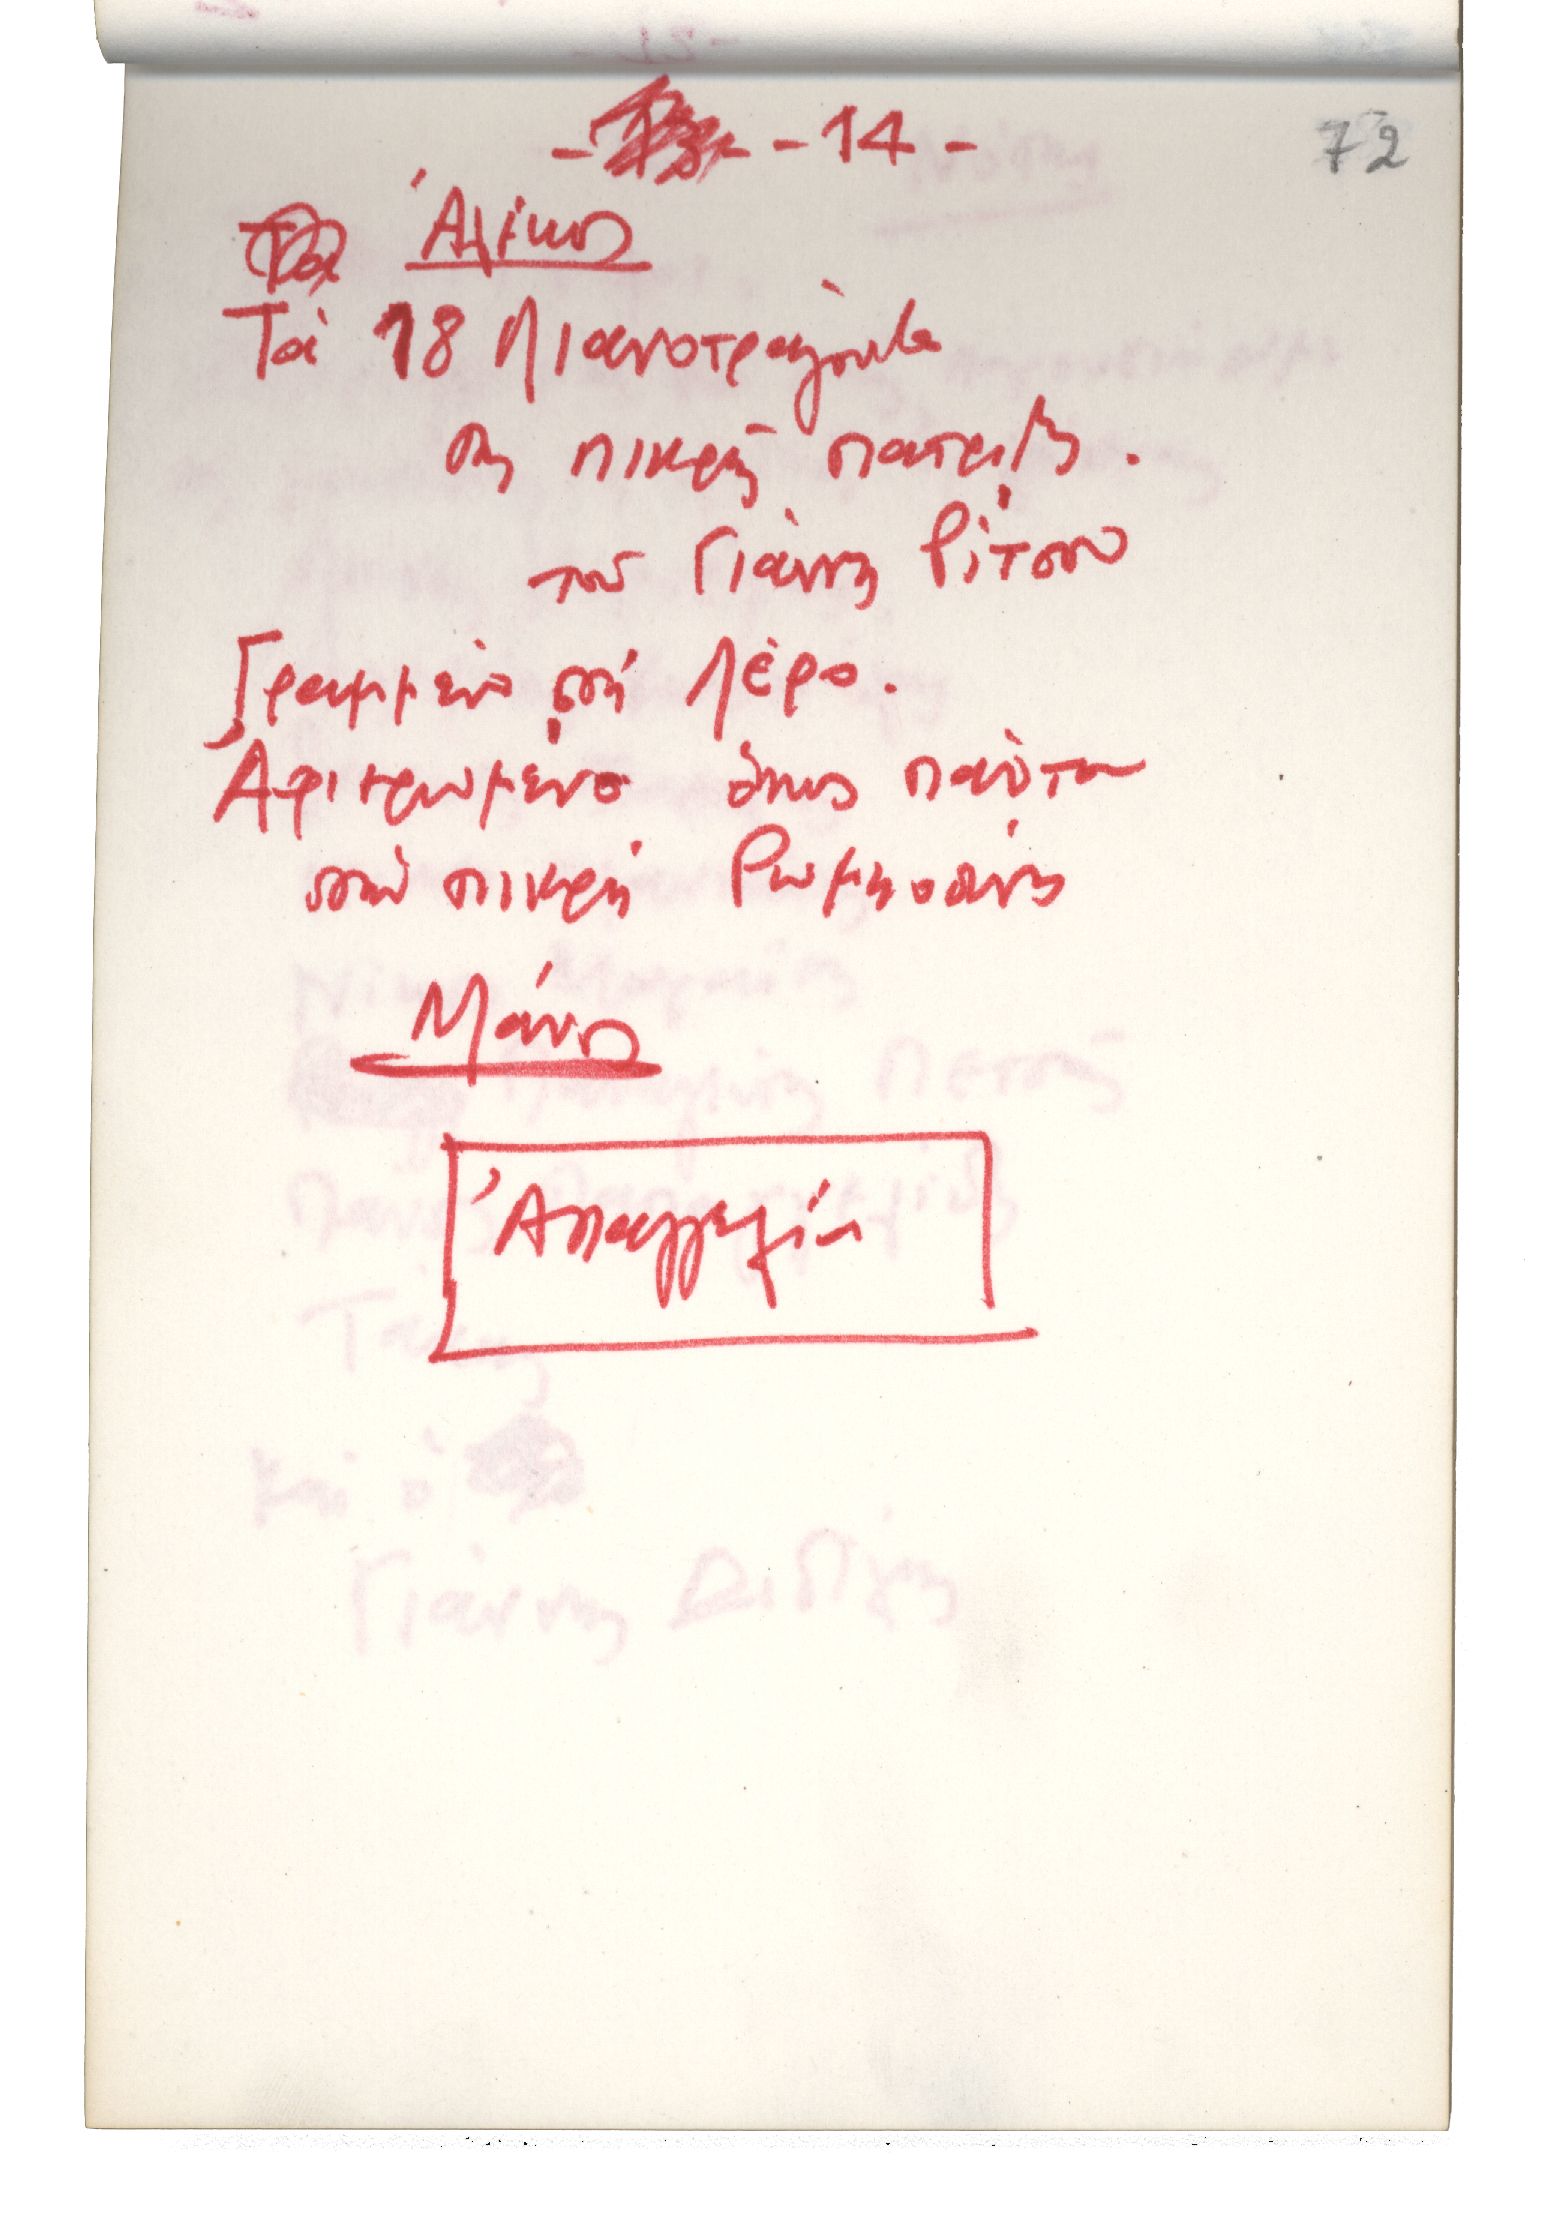 - 14 -
72
Ἀλέκος
Τὰ 18 λιανοτράγουδα
τῆς πικρῆς πατρίδας.
τοῦ Γιάννη Ρίτσου
Γραμμένα στὴ Λέρο.
Ἀφιερωμένα ὅπως πάντα
στὴν πικρὴ Ρωμηοσύνη
Μάνος
Ἀπαγγελία